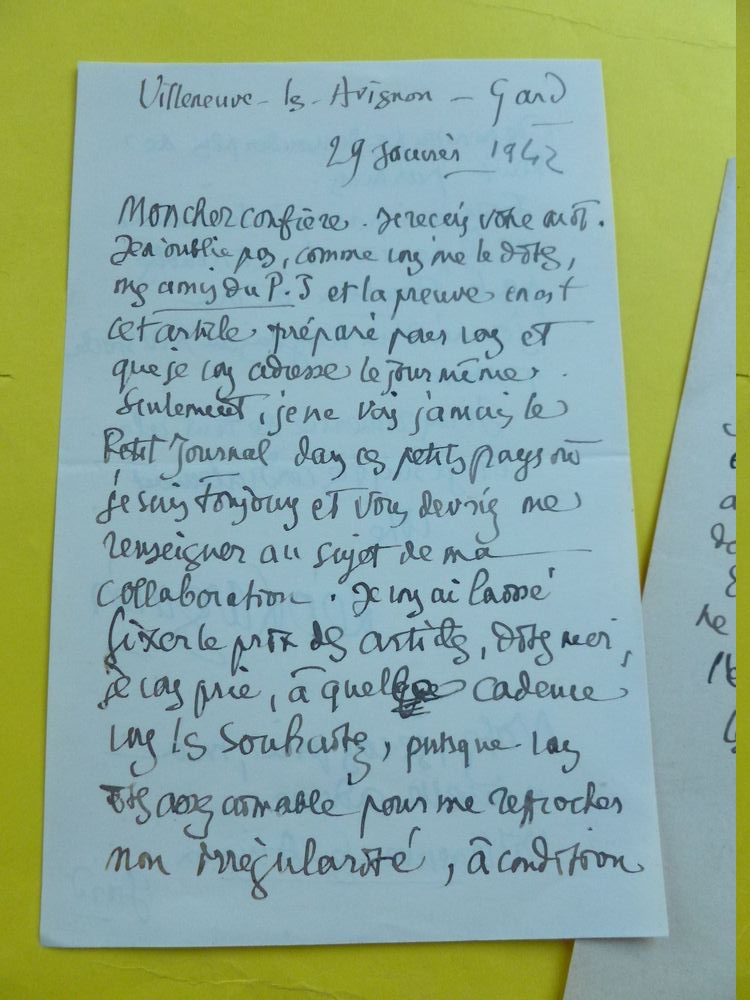 Villeneuve-lès-Avignon - Gard
29 Janvier 1942
Mon cher confrère. Je reçois votre mot.
Je n'oublie pas, comme vous me le dites,
mes amis du P.J et la preuve en est
cet article préparé pour vous et
que je vous adresse le jour même.
Seulement, je ne vois jamais le
Petit Journal dans ces petits pays où
je suis toujours et vous devriez me
renseigner au sujet de ma
collaboration. Je vous ai laissé
fixer le prix des articles, dites moi,
je vous prie, à quelle cadence
vous les souhaitez, puisque vous
êtes assez aimable pour me reprocher
mon irrégularité, à condition